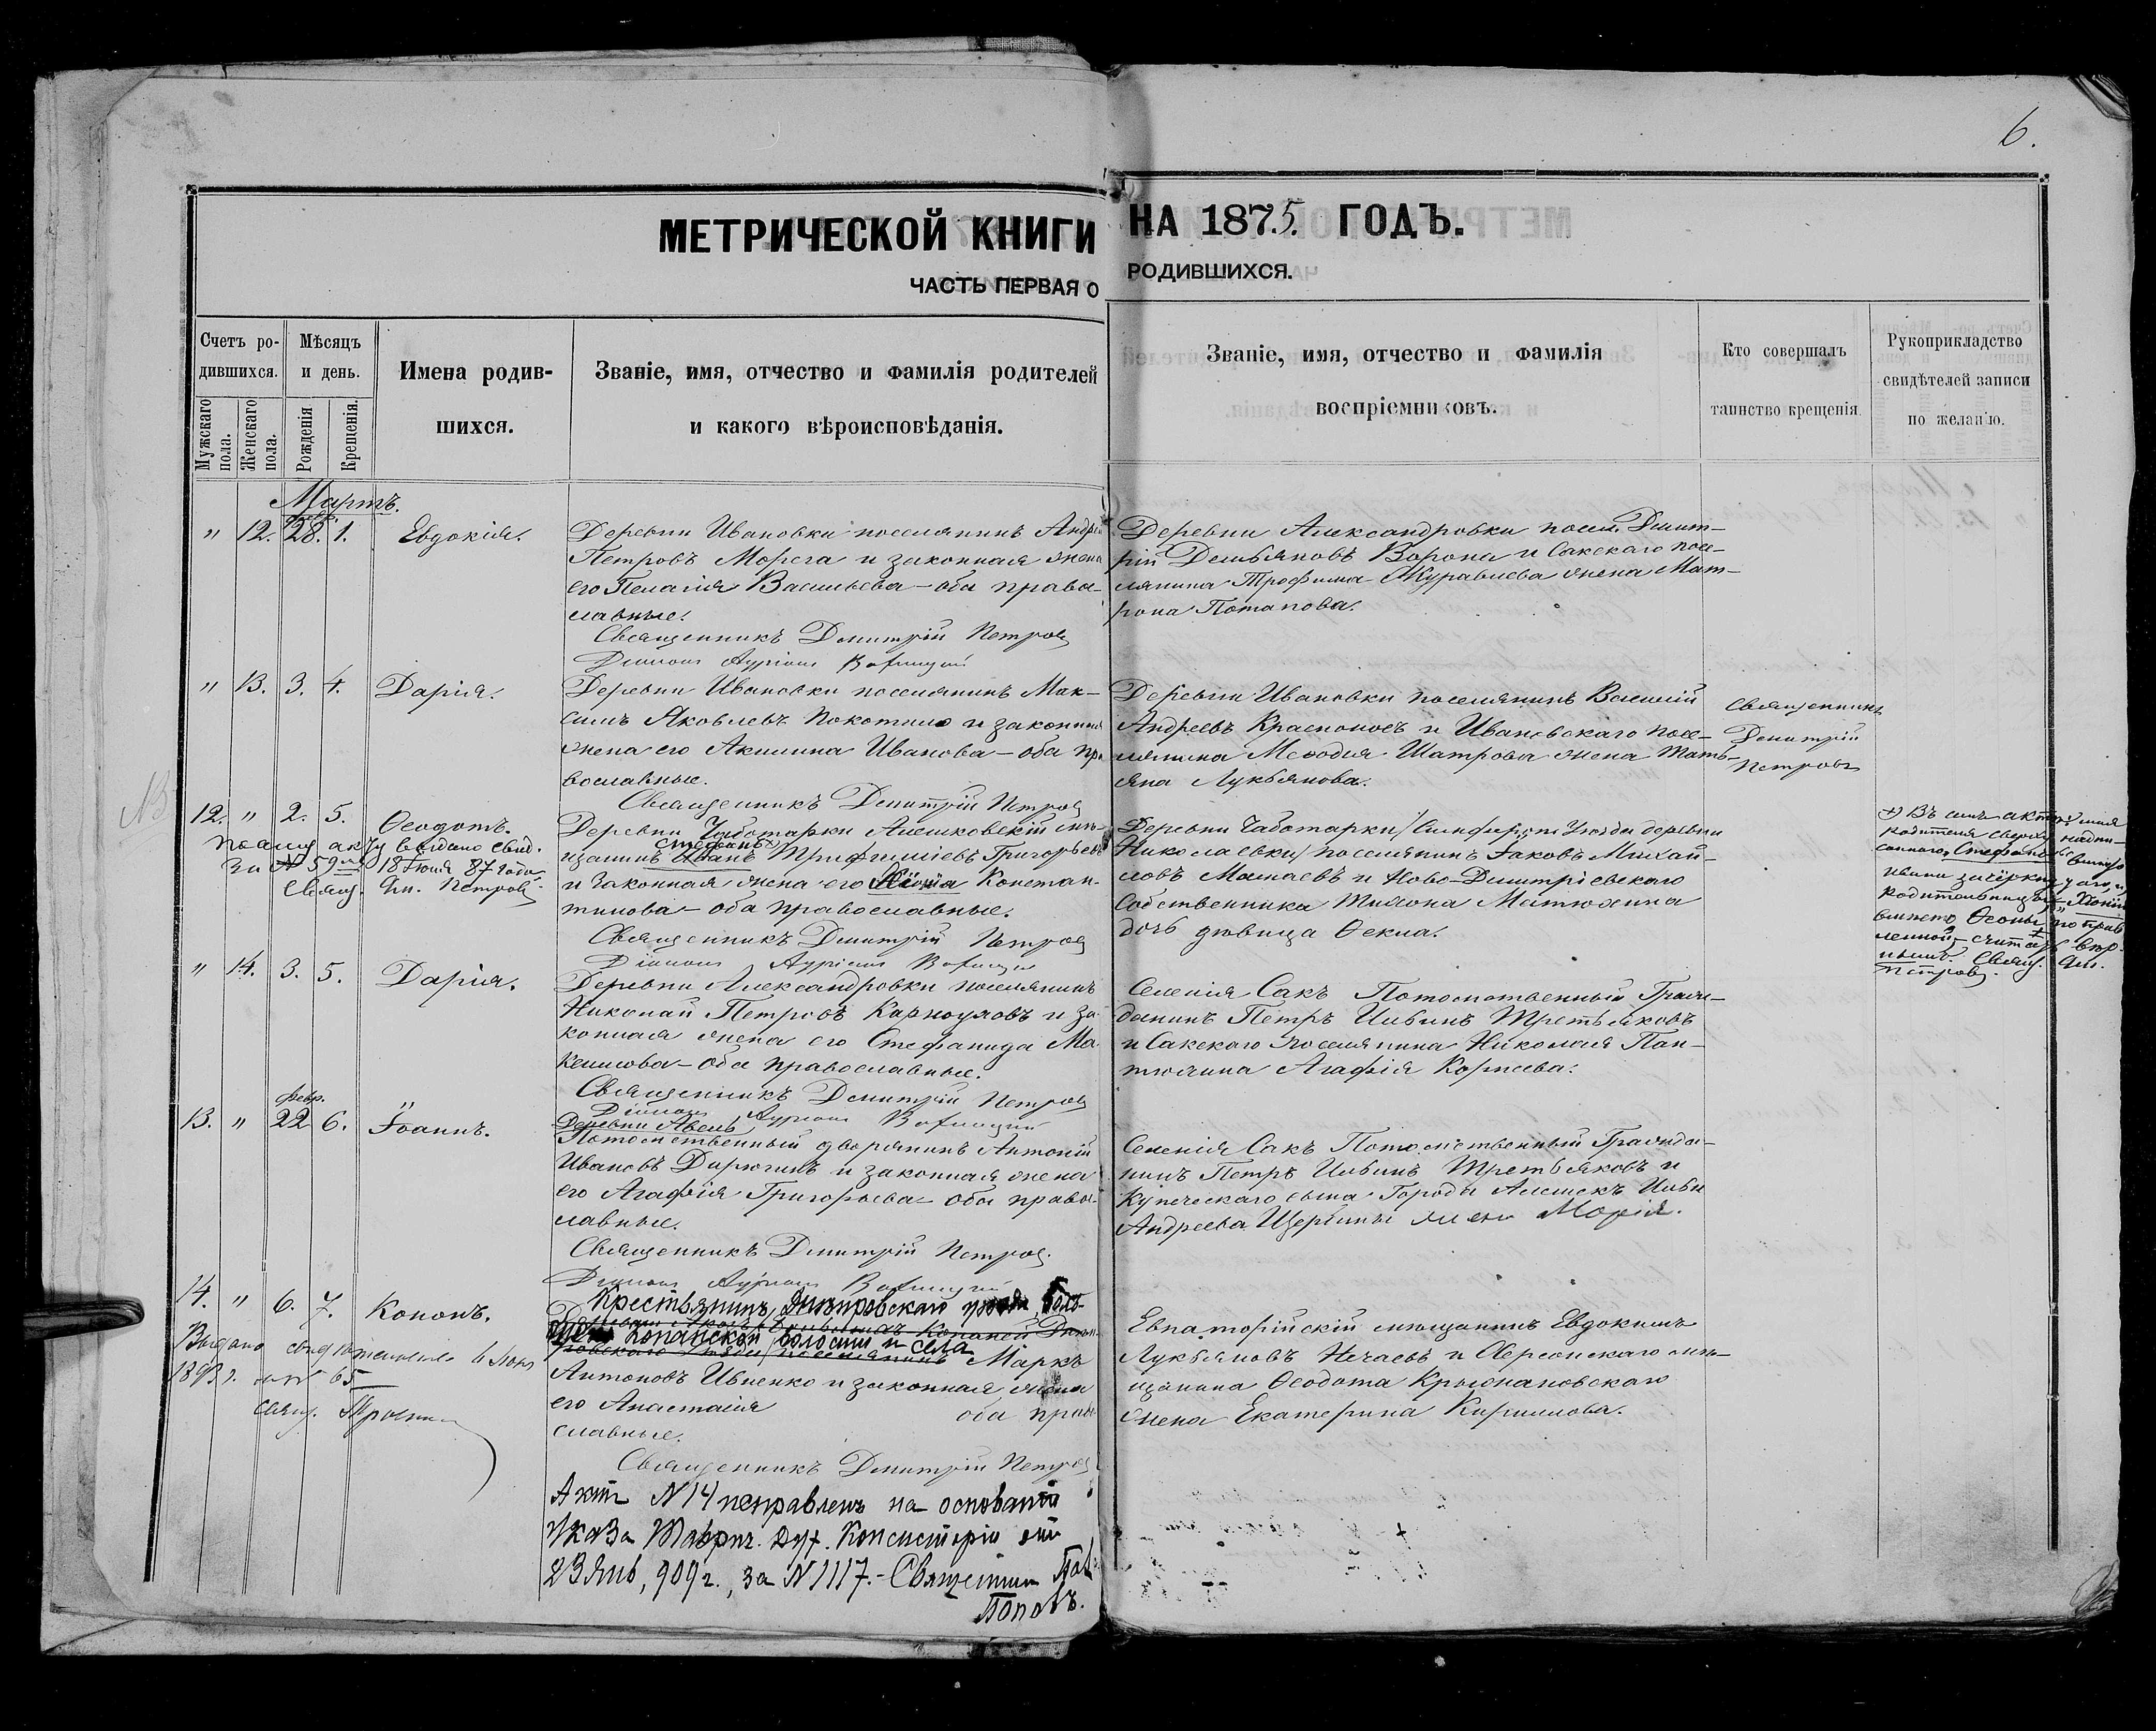 6.
МЕТРИЧЕСКОЙ КНИГИ НА 1875. ГОДЪ.
ЧАСТЬ ПЕРВАЯ О РОДИВШИХСЯ.
Счетъ ро-
дившихся.
Мужскаго пола.
Женскаго пола.
Мѣсяцъ
и день.
Рожденія
Крещенія.
Имена родив-
шихся.
Званіе, имя, отчество и фамилія родителей
и какого вѣроисповѣданія.
Званіе, имя, отчество и фамилія
воспріемниковъ.
Кто совершалъ
таинство крещенія.
Рукоприкладство
свидѣтелей записи
по желанію.
Мартъ.
" 12. 28. 1. Евдокія.
Деревни Ивановки поселянинъ Андрей
Петровъ Морега и законная жена
его Пелагія Васильева – оба право-
славные.
Священникъ Димитрій Петровъ
Деревни Александровки посел. Димит-
рій Демьяновъ Ворона и Сакскаго посе-
лянина Трофима Журавлева жена Мат-
рона Потапова.
" 13. 3. 4. Дарія.
Деревни Ивановки поселянинъ Мак-
симъ Яковлевъ Покотило и законная
жена его Акилина Иванова – оба пра
вославные.
Священникъ Димитрій Петровъ
Деревни Ивановки поселянинъ Василій
Андреевъ Красноносъ и Ивановскаго посе-
лянина Меѳодія Шатрова жена Тать-
яна Лукьянова.
Священникъ
Димитрій
Петровъ
12. " 2. 5. Ѳеодотъ.
По сему акту выдано свид.
за № 59 18 Іюля 87 года
Свящ. Дм. Петровъ
Деревни Чаботарки Алешковскій мѣ-
Стефанъ
щанинъ Иванъ Трифилліевъ Григорьевъ
и законная жена его Констан-
тинова – оба православные.
Священникъ Димитрій Петровъ
Деревни Чаботарки / Симфероп. Уѣзда деревни
Николаевки / поселянинъ Іаковъ Михай-
ловъ Мамаевъ и Ново-Димитріевскаго
собственника Матюхина
дочь дѣвица Ѳекла.
Въ семъ актѣ имя
родителя сверху надпи-
саннаго Стефанъ вмѣсто
Ивана зачеркнутаго, и
родительницы
вмѣсто поправ
ленной – считать вѣр-
нымъ. Свящ. Дм.
Петровъ.
" 14. 3. 5. Дарія.
Деревни Александровки поселянинъ
Николай Петровъ Карноуховъ и за-
конная жена его Стефанида Ма-
ксимова – оба православные.
Священникъ Димитрій Петровъ
Селенія Сакъ Потомственный Граж-
данинъ Петръ Ильинъ Третьяковъ
и Сакскаго поселянина Николая Пан-
тюхина Агафія Корнеева.
февр.
13. " 22 6. Іоаннъ.
Деревни Авель
Потомственный дворянинъ Антоній
Ивановъ Дирюгинъ и законная жена
его Агафія Григорьева – оба право-
славные.
Священникъ Димитрій Петровъ.
Селенія Сакъ Потомственный Гражда-
нинъ Петръ Ильинъ Третьяковъ и
Купеческаго сына Города Алешекъ Ильи
Андреева Щербины жена Марія.
14. " 6. 7. Кононъ.
Выдано свидѣтельство 6 Іюня
1893 г. за № 65
Свящ.
Крестьянинъ Днѣпровскаго уѣзда,
Копанской волости и села
Маркъ
Антоновъ Ивненко и законная жена
его Анастасія оба право
славные.
Священникъ Димитрій Петровъ
Евпаторійскій мѣщанинъ Евдокимъ
Лукьяновъ Нечаевъ и Херсонскаго мѣ-
щанина Ѳеодота Крыжановскаго
жена Екатерина Кириллова.
Актъ № 14 исправленъ на основаніи
указа Таврич. Дух. Консисторіи отъ
23 Янв. 909 г., за № 1117. – Священникъ
Поповъ.